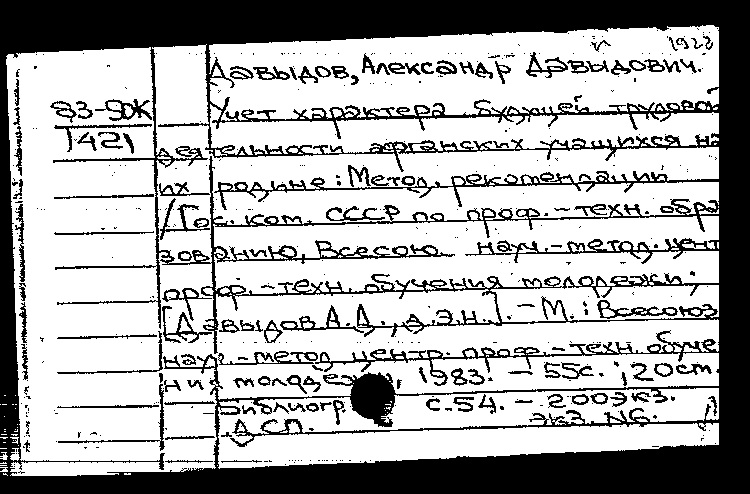 1928
Давыдов, Александр Давыдович.
83-50К Учет характера будущей трудовой
1421
деятельности афганских учащихся на
их родине: Метод. рекомендации
/Гос. ком. СССР по проф.-техн. обра
зованию, Всесоюз. науч.-метод. цент
проф.-техн. обучения молодежи;
[Давыдов А.Д., д.э.н.]. - М.: Всесоюз
науч.-метод. центр. проф.-техн. обуче
ния молодежи, 1983. - 55с.; 20 см.
Библиогр. с.54. - 200 экз.
ДСП. экз. №6.